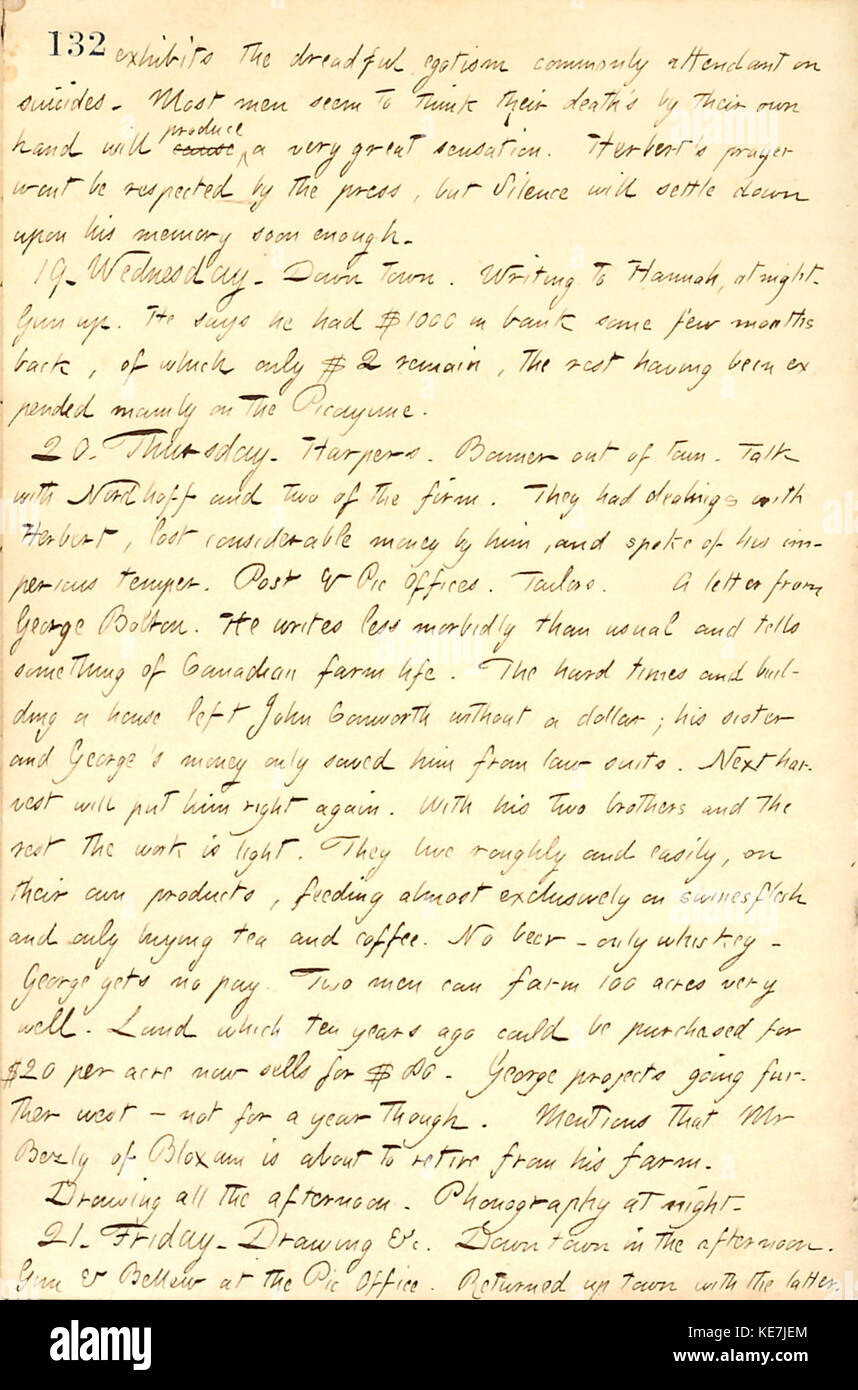 132 exhibits the dreadful egotism commonly attendant on
suicides. Most men seem to think their death's by their own
hand will produce a very great sensation. Herbert's prayer
wont be respected by the press, but Silence will settle down
upon his memory soon enough.
19. Wednesday. Down town. Writing to Hannah, at night.
Gun up. He says he had $1000 in bank some few months
back, of which only $2 remain, the rest having been ex
pended mainly on the Picayune.
20. Thursday. Harpers. Bonner out of town. Talk
with Nordhoff and two of the firm. They had dealings with
Herbert, lost considerable money by him, and spoke of his im-
perious temper. Post & Pic Offices. Tailors. A letter from
George Bolton. He writes less morbidly than usual and tells
something of Canadian farm life. The hard times and buil-
ding a house left John Conworth without a dollar; his sister
and George's money only saved him from law suits. Next har-
vest will put him right again. With his two brothers and the
rest the work is light. They live roughly and easily, on
their own products, feeding almost exclusively on swinesflesh
and only buying tea and coffee. No beer – only whiskey –
George gets no pay. Two men can farm 100 acres very
well. Land which ten years ago could be purchased for
$20 per acre now sells for $80. George projects going fur-
ther west – not for a year though. Mentions that Mr
Bezly of Bloxam is about to retire from his farm.
Drawing all the afternoon. Phonography at night.
21. Friday. Drawing &c. Down town in the afternoon.
Gun & Bellew at the Pic Office. Returned up town with the latter.
alamy
Image ID: KE7JEM
www.alamy.com